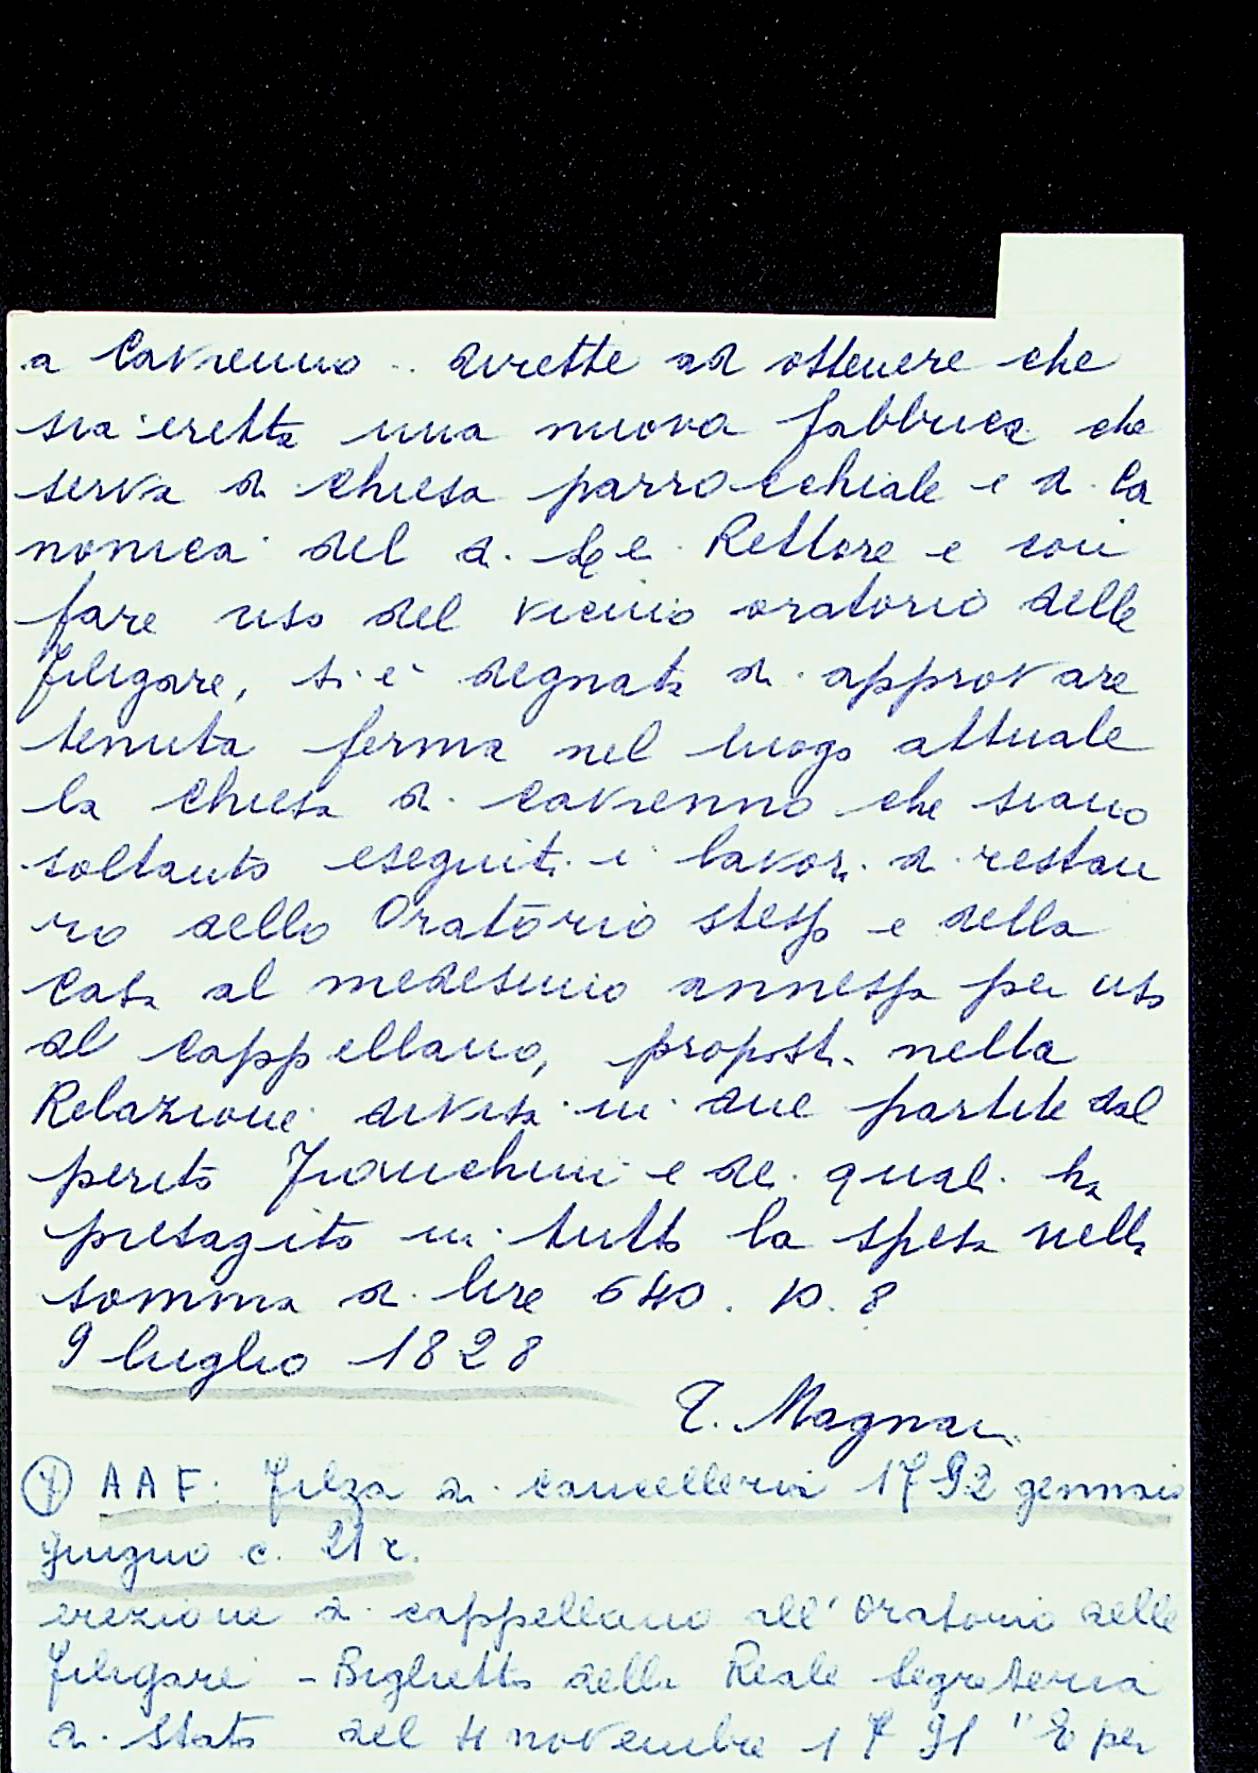 a Cavrenno .. dirette ad ottenere che
sia eretta una nuova fabbrica che
serva di chiesa parrocchiale e di Ca
nonica del d. Rettore e così
fare uso del vicino oratorio delle
Filigare, si è degnata di approvare
tenuta ferma nel luogo attuale
la Chiesa di Cavrenno che siano
soltanto eseguiti i lavori di restau
ro dello Oratorio stesso e della
Casa al medesimo annessa per uso
al Cappellano, proposti nella
Relazione divisa in due partite dal
perito e de quali ha
presagito in tutto la spesa nella
somma di lire 640. 10. 8
9 luglio 1828
T. Magnani
A A F: Filza di cancelleria 1792 gennaio
giugno c. 21 r.
erezione di cappellano all'Oratorio delle
Filigare - Biglietto della Reale Segreteria
di Stato del 4 novembre 1791 " E per